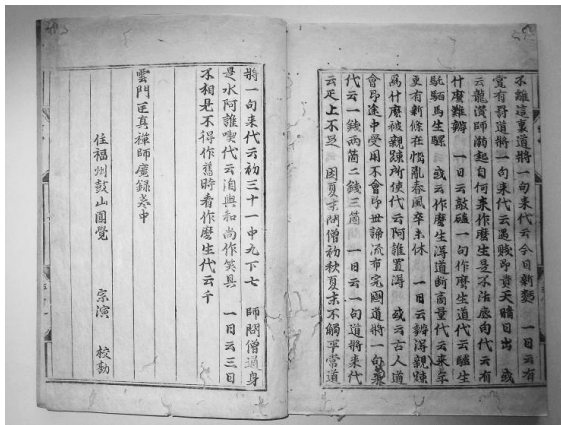 不離這裏道將一句來代云今日新熱　一日云有
賞有罰道將一句來代云愚賤即貴天晴日出　或
云龍潭師渤起自何來作麼生是不活底句代云有
什麼難辨　一日云敲磕一句作麼生道代云驢生
馳馬生騾　或云作麼生得道斷商量代云來年
更有新條在惱亂春風卒未休　一日云辨得親疎
為什麼被親疎所使代云阿誰置得　或云古人道
會即途中受用不會即世諦流布完國道將一句來
代云一錢兩箇二錢三箇　一日云一句道將來代
云疋上不足　因夏末問僧初秋夏末不觸平常道
將一句來代云初三十一中九下七　師問僧通身
是水阿誰喫代云洎與和尚作笑具　一日云三日
不相見不得作舊時看作麼生代云千
雲門匡真禪師廣錄卷中
住福州鼓山圓覺　宗演　校勘